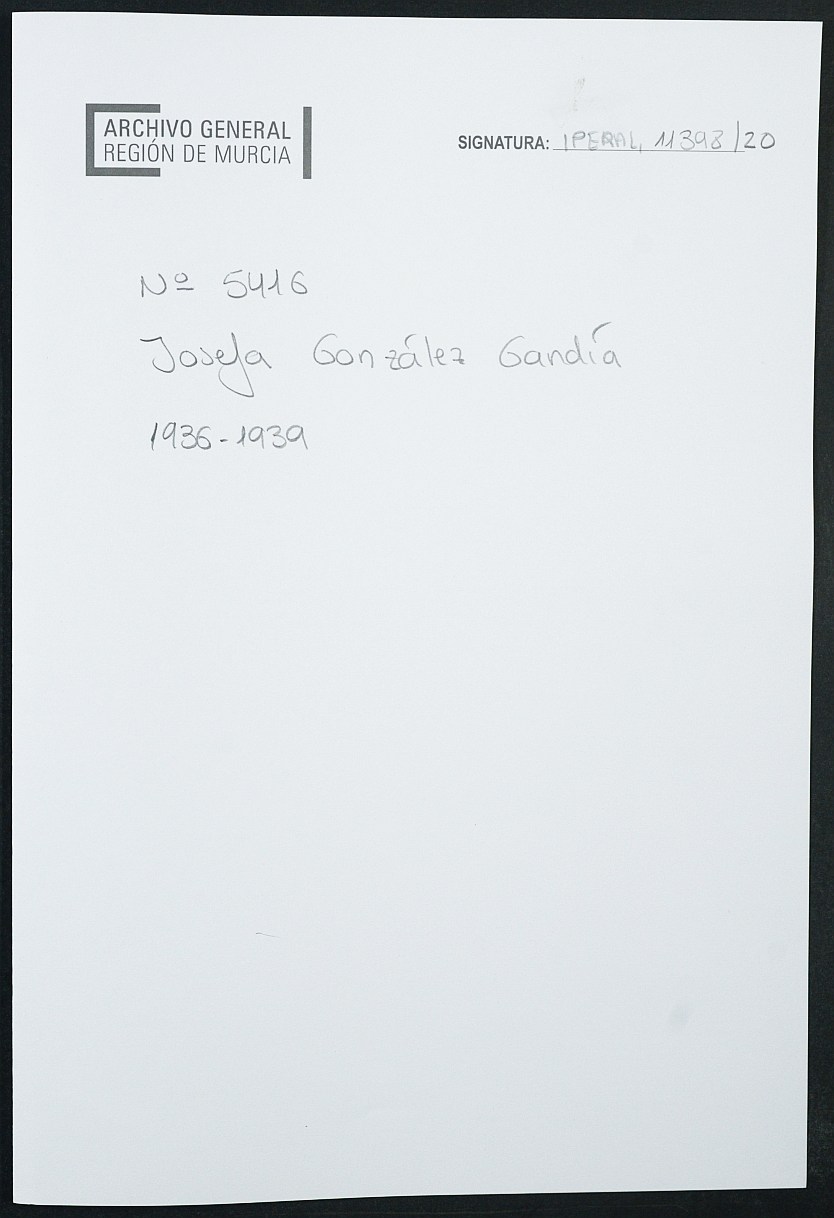 ARCHIVO GENERAL
REGIÓN DE MURCIA
SIGNATURA: IPERAL, 11398/20
Nº 5416
Josefa González Gandía
1936-1939